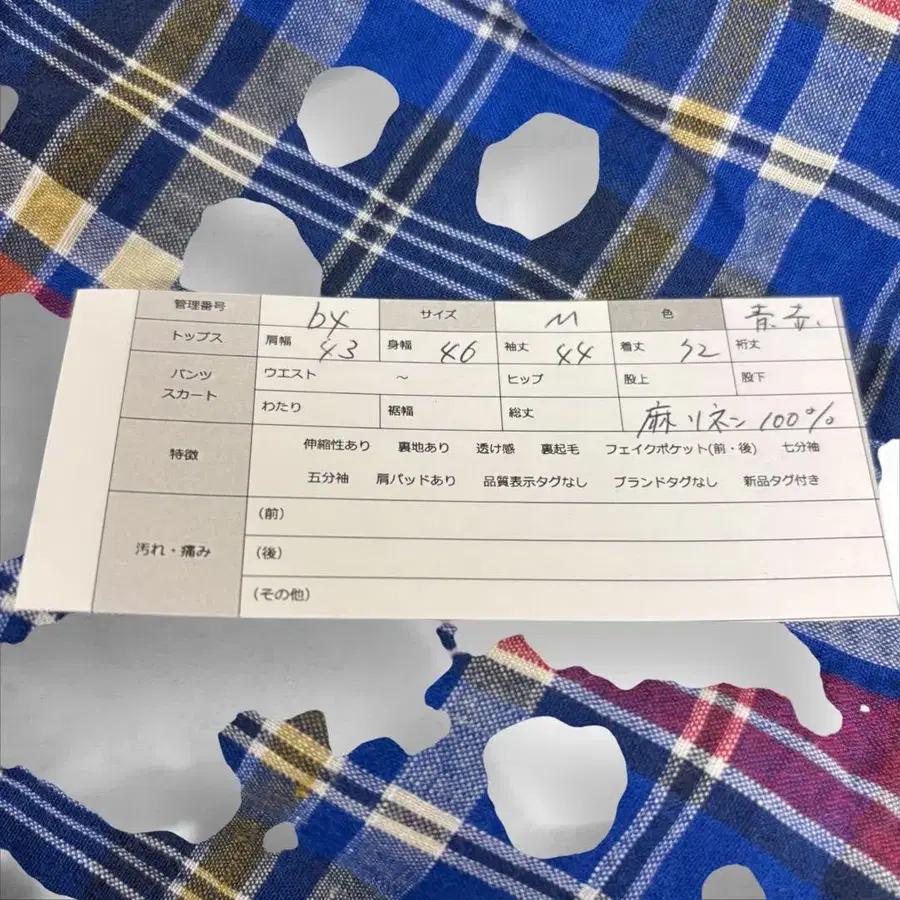 管理番号 b4 サイズ M 色 青.赤.
トップス 肩幅 43 身幅 46 袖丈 44 着丈 72 裄丈
パンツ スカート ウエスト ～ ヒップ 股上 股下
わたり 裾幅 総丈 麻リネン 100%
特徴 伸縮性あり 裏地あり 透け感 裏起毛 フェイクポケット(前・後) 七分袖
五分袖 肩パッドあり 品質表示タグなし ブランドタグなし 新品タグ付き
汚れ・痛み (前)
(後)
(その他)